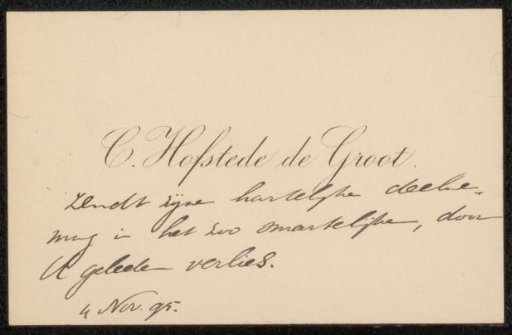 C. Hofstede de Groot.
zendt zijne hartelijke deelne-
ming in het zoo smartelijke, door
U geleden verlies.
4 Nov. 95.